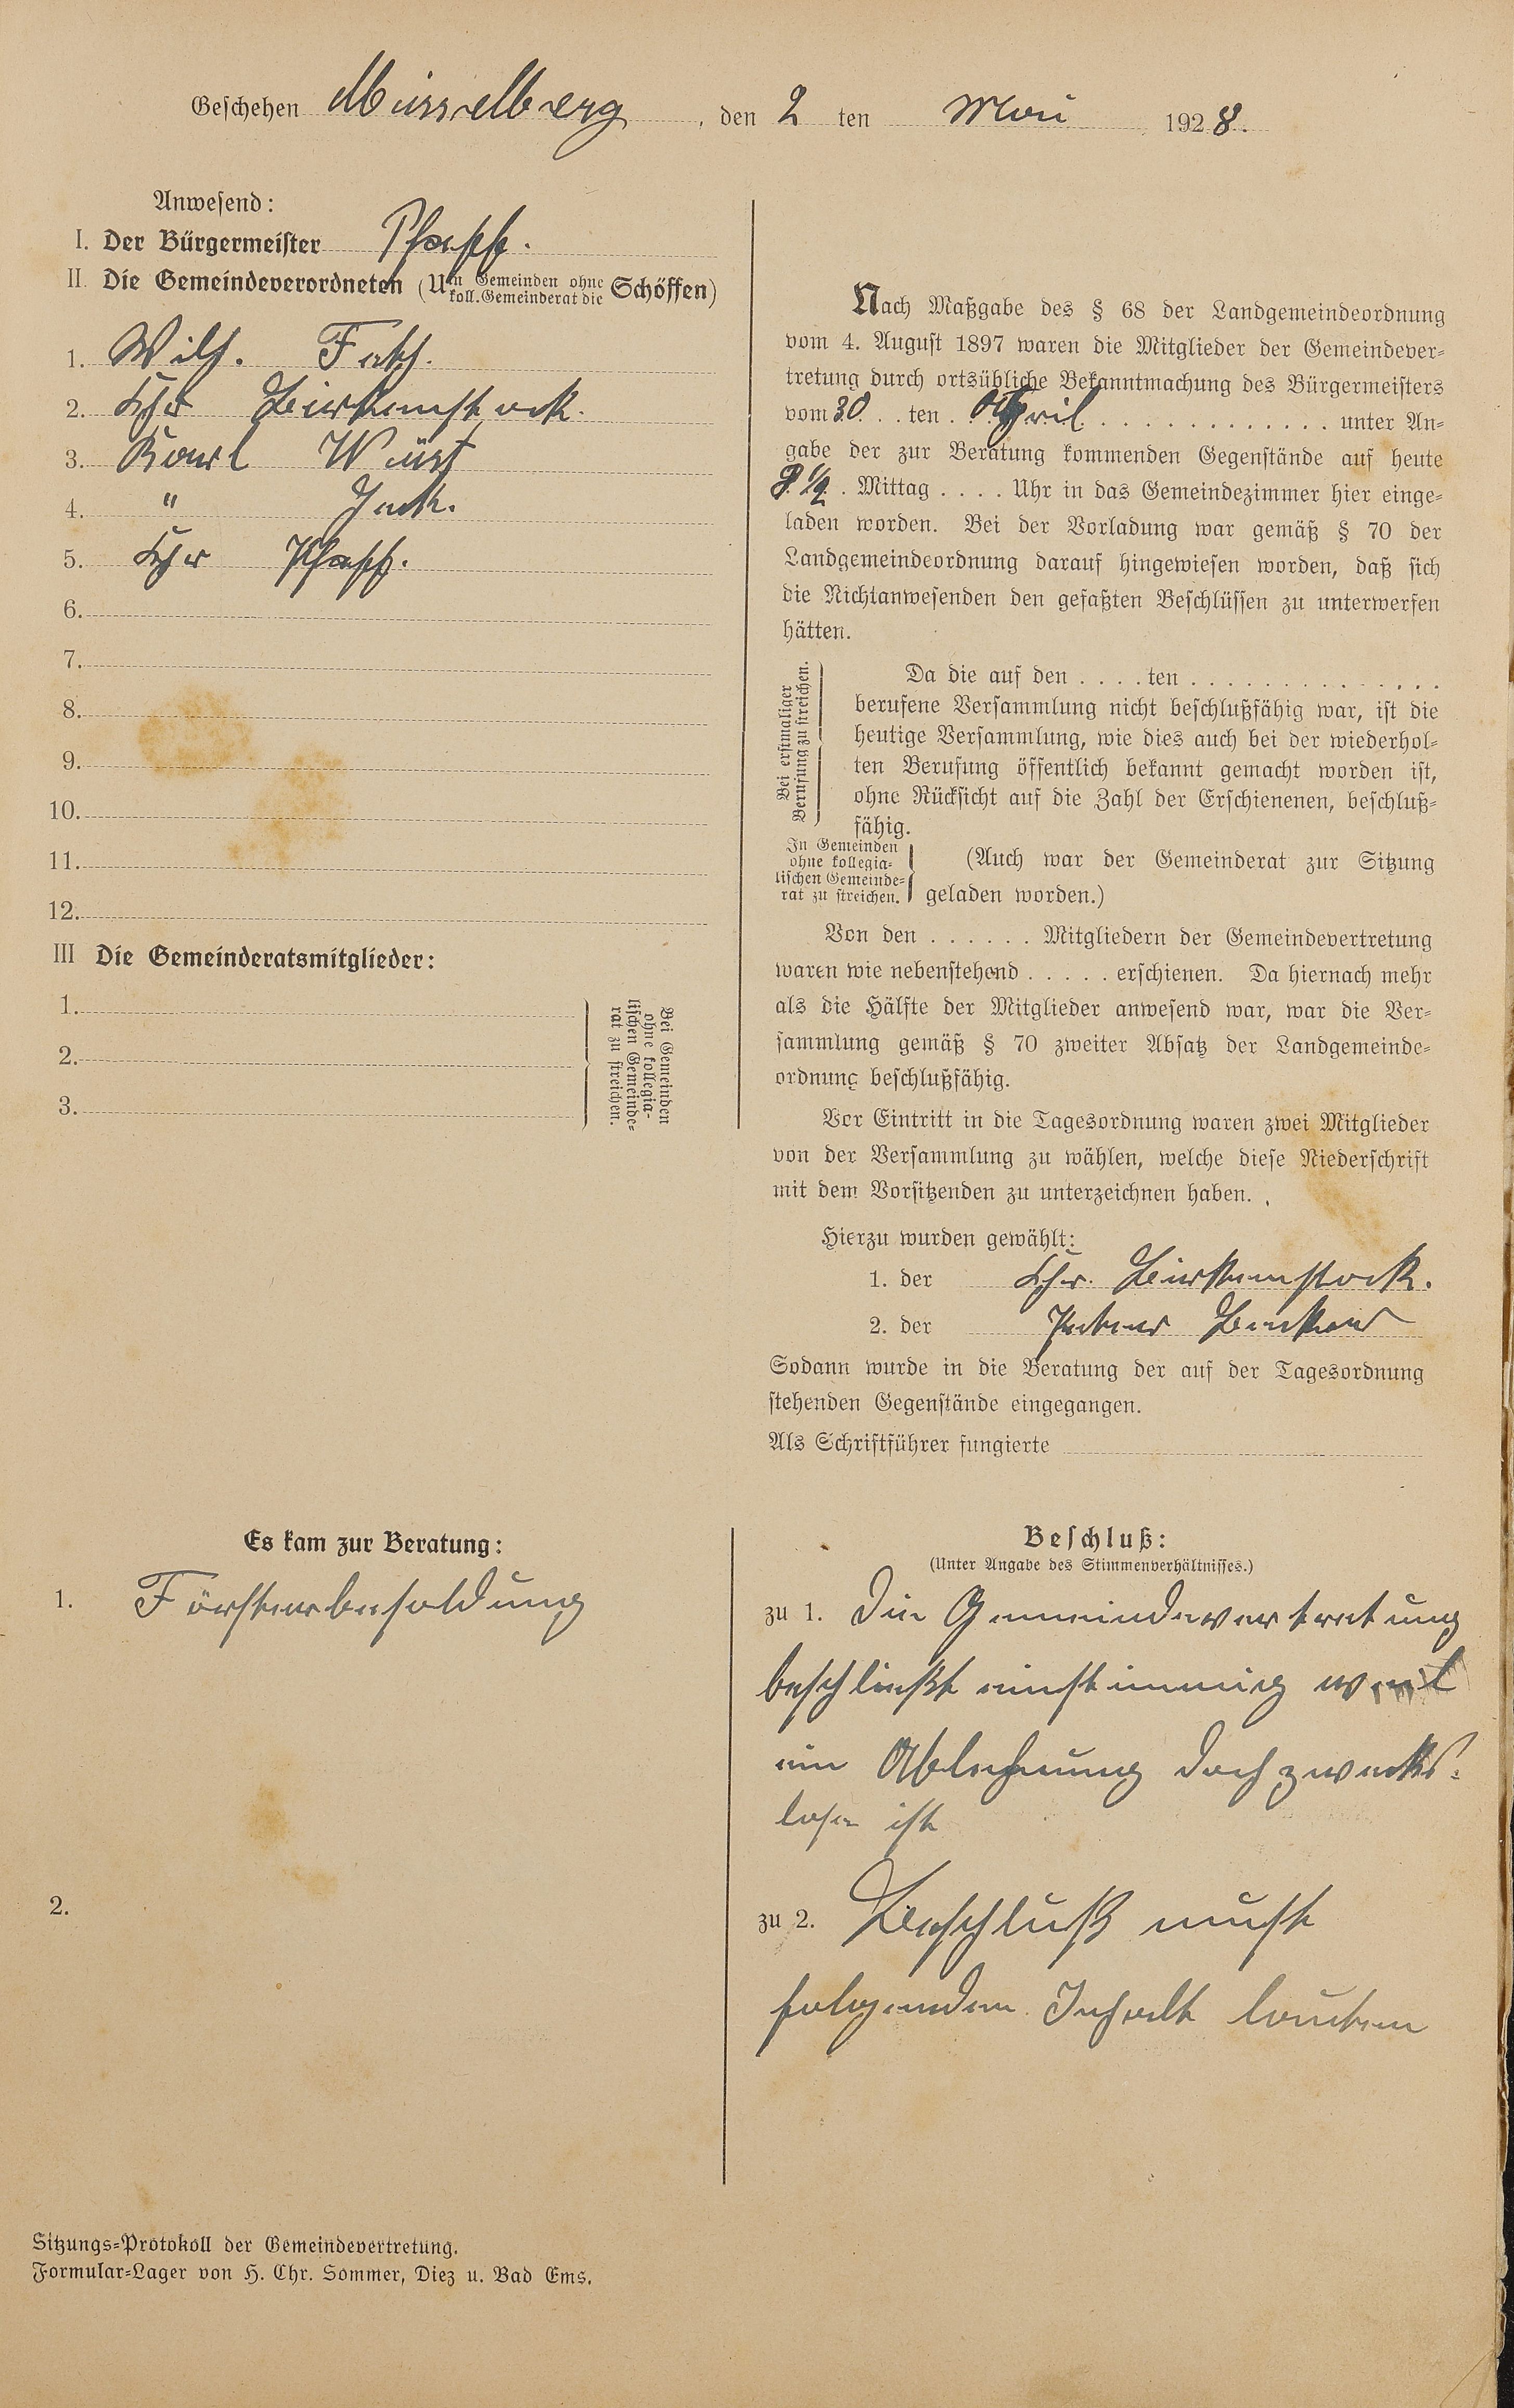 Geschehen Müsselberg, den 2 ten Mai 1928.
Anwesend:
I. Der Bürgermeister Pfaff.
II. Die Gemeindeverordneten (U in Gemeinden ohne koll. Gemeinderat die Schöffen)
1. Wilh.
2. Chr Birkenstock.
3. Karl Wüst
4. " Jeck.
5. Chr Pfaff.
6.
7.
8.
9.
10.
11.
12.
III Die Gemeinderatsmitglieder:
1.
2.
3.
Bei Gemeinden
ohne kollegia-
lischen Gemeinde-
rat zu streichen.
Nach Maßgabe des § 68 der Landgemeindeordnung
vom 4. August 1897 waren die Mitglieder der Gemeindever-
tretung durch ortsübliche Bekanntmachung des Bürgermeisters
vom 30. . ten . April . . . . . . . . . . . . unter An-
gabe der zur Beratung kommenden Gegenstände auf heute
8 ½ . Mittag . . . . Uhr in das Gemeindezimmer hier einge-
laden worden. Bei der Vorladung war gemäß § 70 der
Landgemeindeordnung darauf hingewiesen worden, daß sich
die Nichtanwesenden den gefaßten Beschlüssen zu unterwerfen
hätten.
Bei erstmaliger
Berufung zu streichen.
Da die auf den . . . . ten . . . . . . . . . . . . . .
berufene Versammlung nicht beschlußfähig war, ist die
heutige Versammlung, wie dies auch bei der wiederhol-
ten Berufung öffentlich bekannt gemacht worden ist,
ohne Rücksicht auf die Zahl der Erschienenen, beschluß-
fähig.
In Gemeinden
ohne kollegia-
lischen Gemeinde-
rat zu streichen.
(Auch war der Gemeinderat zur Sitzung
geladen worden.)
Von den . . . . . . Mitgliedern der Gemeindevertretung
waren wie nebenstehend . . . . . erschienen. Da hiernach mehr
als die Hälfte der Mitglieder anwesend war, war die Ver-
sammlung gemäß § 70 zweiter Absatz der Landgemeinde-
ordnung beschlußfähig.
Vor Eintritt in die Tagesordnung waren zwei Mitglieder
von der Versammlung zu wählen, welche diese Niederschrift
mit dem Vorsitzenden zu unterzeichnen haben.
Hierzu wurden gewählt:
1. der Chr. Birkenstock.
2. der Peter Becker
Sodann wurde in die Beratung der auf der Tagesordnung
stehenden Gegenstände eingegangen.
Als Schriftführer fungierte
Es kam zur Beratung:
1. Försterbesoldung
2.
Beschluß:
(Unter Angabe des Stimmenverhältnisses.)
zu 1. Die Gemeindevertretung
beschließt einstimmig weil
ein Ablehnung doch zwecks-
lose ist
zu 2. Beschluß muste
folgenden Inhalt lauten
Sitzungs-Protokoll der Gemeindevertretung.
Formular-Lager von H. Chr. Sommer, Diez u. Bad Ems.